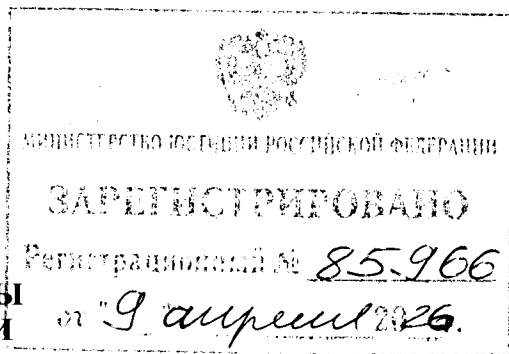 МИНИСТЕРСТВО ЮСТИЦИИ РОССИЙСКОЙ ФЕДЕРАЦИИ
ЗАРЕГИСТРИРОВАНО
Регистрационный № 85966
от "9 апреля 2026.
Ы
И